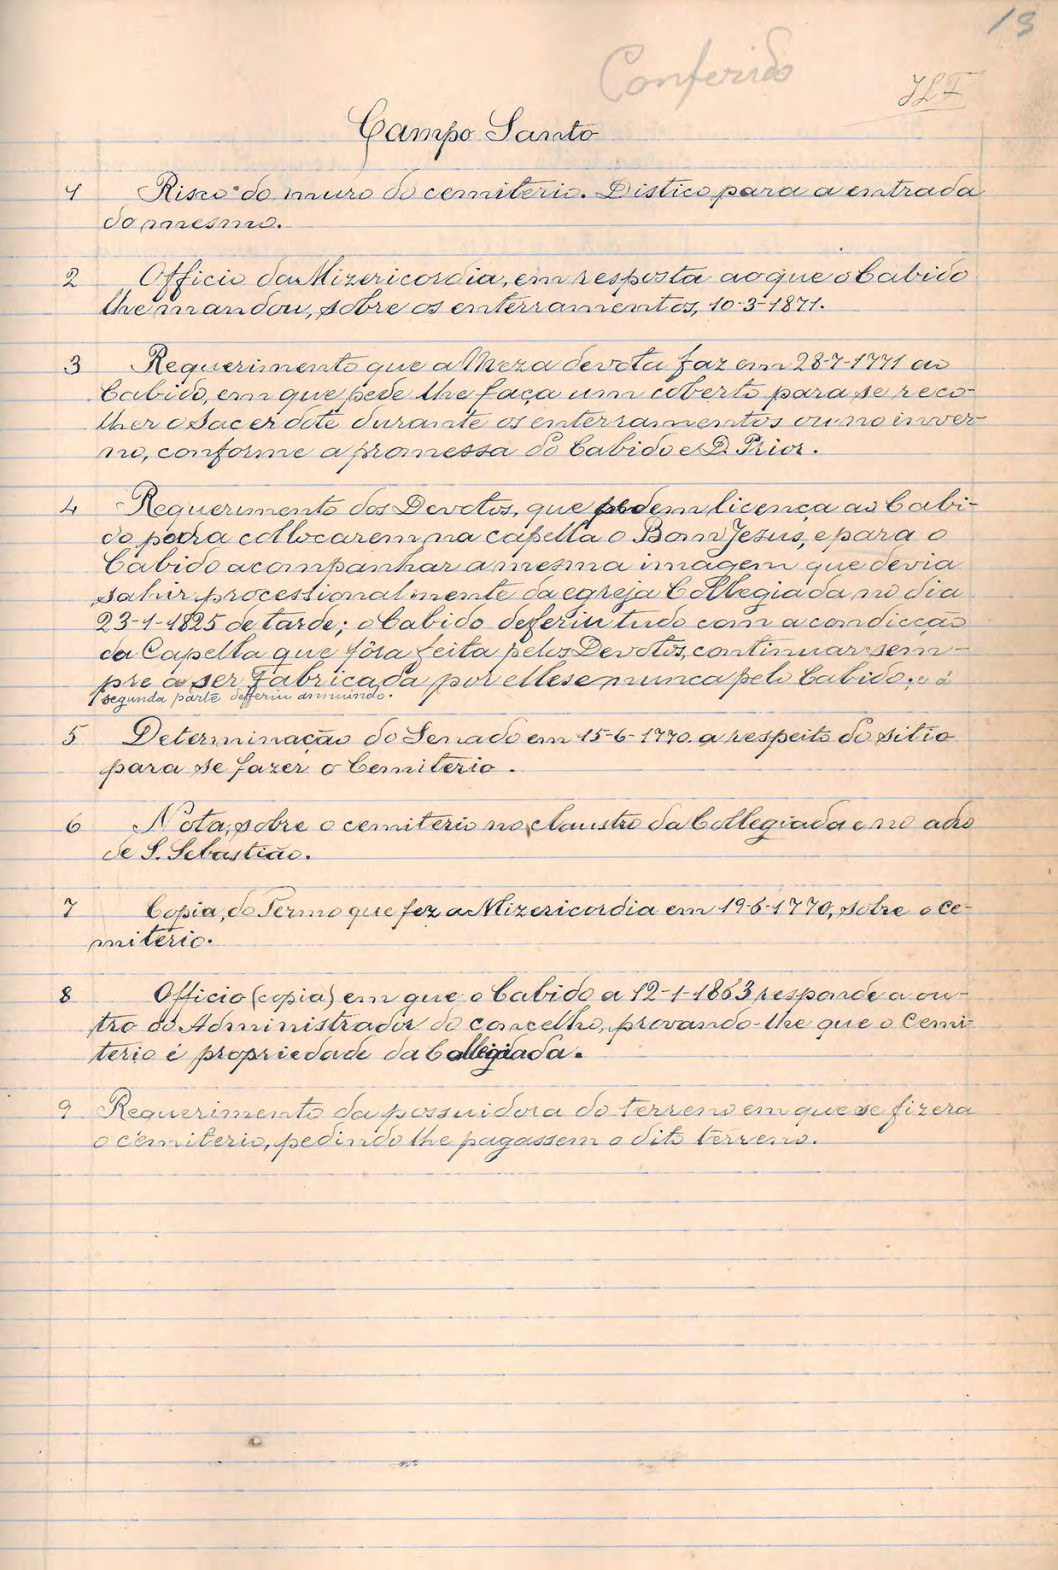 13
Conferido
Campo Santo
1 Risco do muro do cemiterio. Distico para a entrada
do mesmo.
2 Officio da Mizericordia, em resposta ao que o Cabido
lhe mandou, sobre os enterramentos, 10-3-1871.
3 Requerimento que a Meza devota faz em 28-7-1771 ao
Cabido, em que pede lhe faça um coberto para se reco-
lher o Sacerdote durante os enterramentos ou no inver-
no, conforme a promessa do Cabido e D. Prior.
4 Requerimento dos Devotos, que pedem licença ao Cabi-
do para collocarem na capella o Bom Jesus, e para o
Cabido acompanhar a mesma imagem que devia
sahir processionalmente da egreja Collegiada no dia
23-1-1825 de tarde; o Cabido deferiu tudo com a condicção
da Capella que fôra feita pelos Devotos, continuar sem-
pre a ser Fabricada por elles e nunca pelo Cabido; e á
segunda parte defferiu annuindo.
5 Determinação do Senado em 15-6-1770 a respeito do sitio
para se fazer o Cemiterio.
6 Nota, sobre o cemiterio no claustro da Collegiada e no adro
de S. Sebastião.
7 Copia, do Termo que fez a Mizericordia em 19-6-1770, sobre o Ce-
miterio.
8 Officio (copia) em que o Cabido a 12-1-1863 responde a ou-
tro do Administrador do concelho, provando-lhe que o Cemi-
terio é propriedade da Collegiada.
9 Requerimento da possuidora do terreno em que se fizera
o cemiterio, pedindo lhe pagassem o dito terreno.